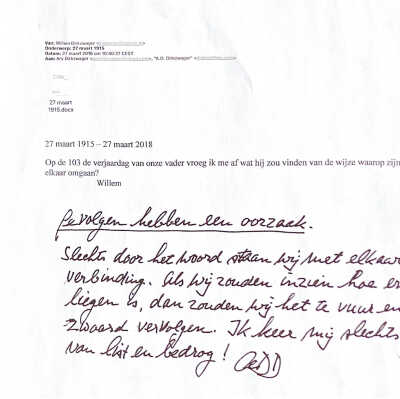 Van: Willem Dirkzwager
Onderwerp: 27 maart 1915
Datum: 27 maart 2018 om 10:40:21 CEST
Aan: Ary Dirkzwager "A.G. Dirkzwager"
27 maart
1915.docx
27 maart 1915 – 27 maart 2018
Op de 103 de verjaardag van onze vader vroeg ik me af wat hij zou vinden van de wijze waarop zijn
elkaar omgaan?
Willem
Gevolgen hebben een oorzaak.
Slechts door het woord staan wij met elkaar
verbinding. Als wij zouden inzien hoe er
liegen is, dan zouden wij het te vuur en
zwaard vervolgen. Ik keer mij slechts
van list en bedrog!